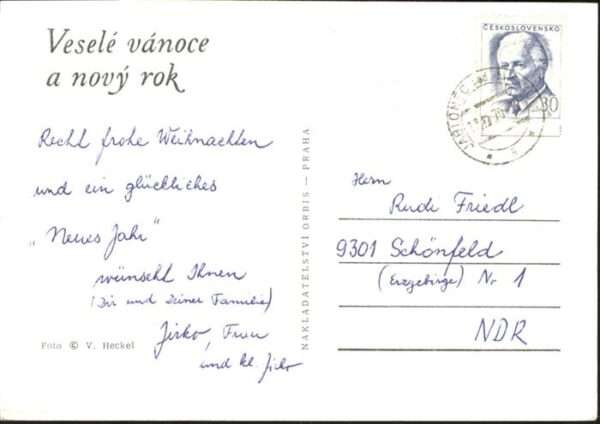 Veselé vánoce
a nový rok
ČESKOSLOVENSKO
30
Recht frohe Weihnachten
und ein glückliches
„Neues Jahr"
wünscht Ihnen
(Dir und Deiner Familie)
Jirko, Frau
und kl. Jirko
Foto © V. Heckel
NAKLADATELSTVÍ ORBIS — PRAHA
Herrn
Rudi Friedl
9301 Schönfeld
(Erzgebirge) Nr 1
NDR